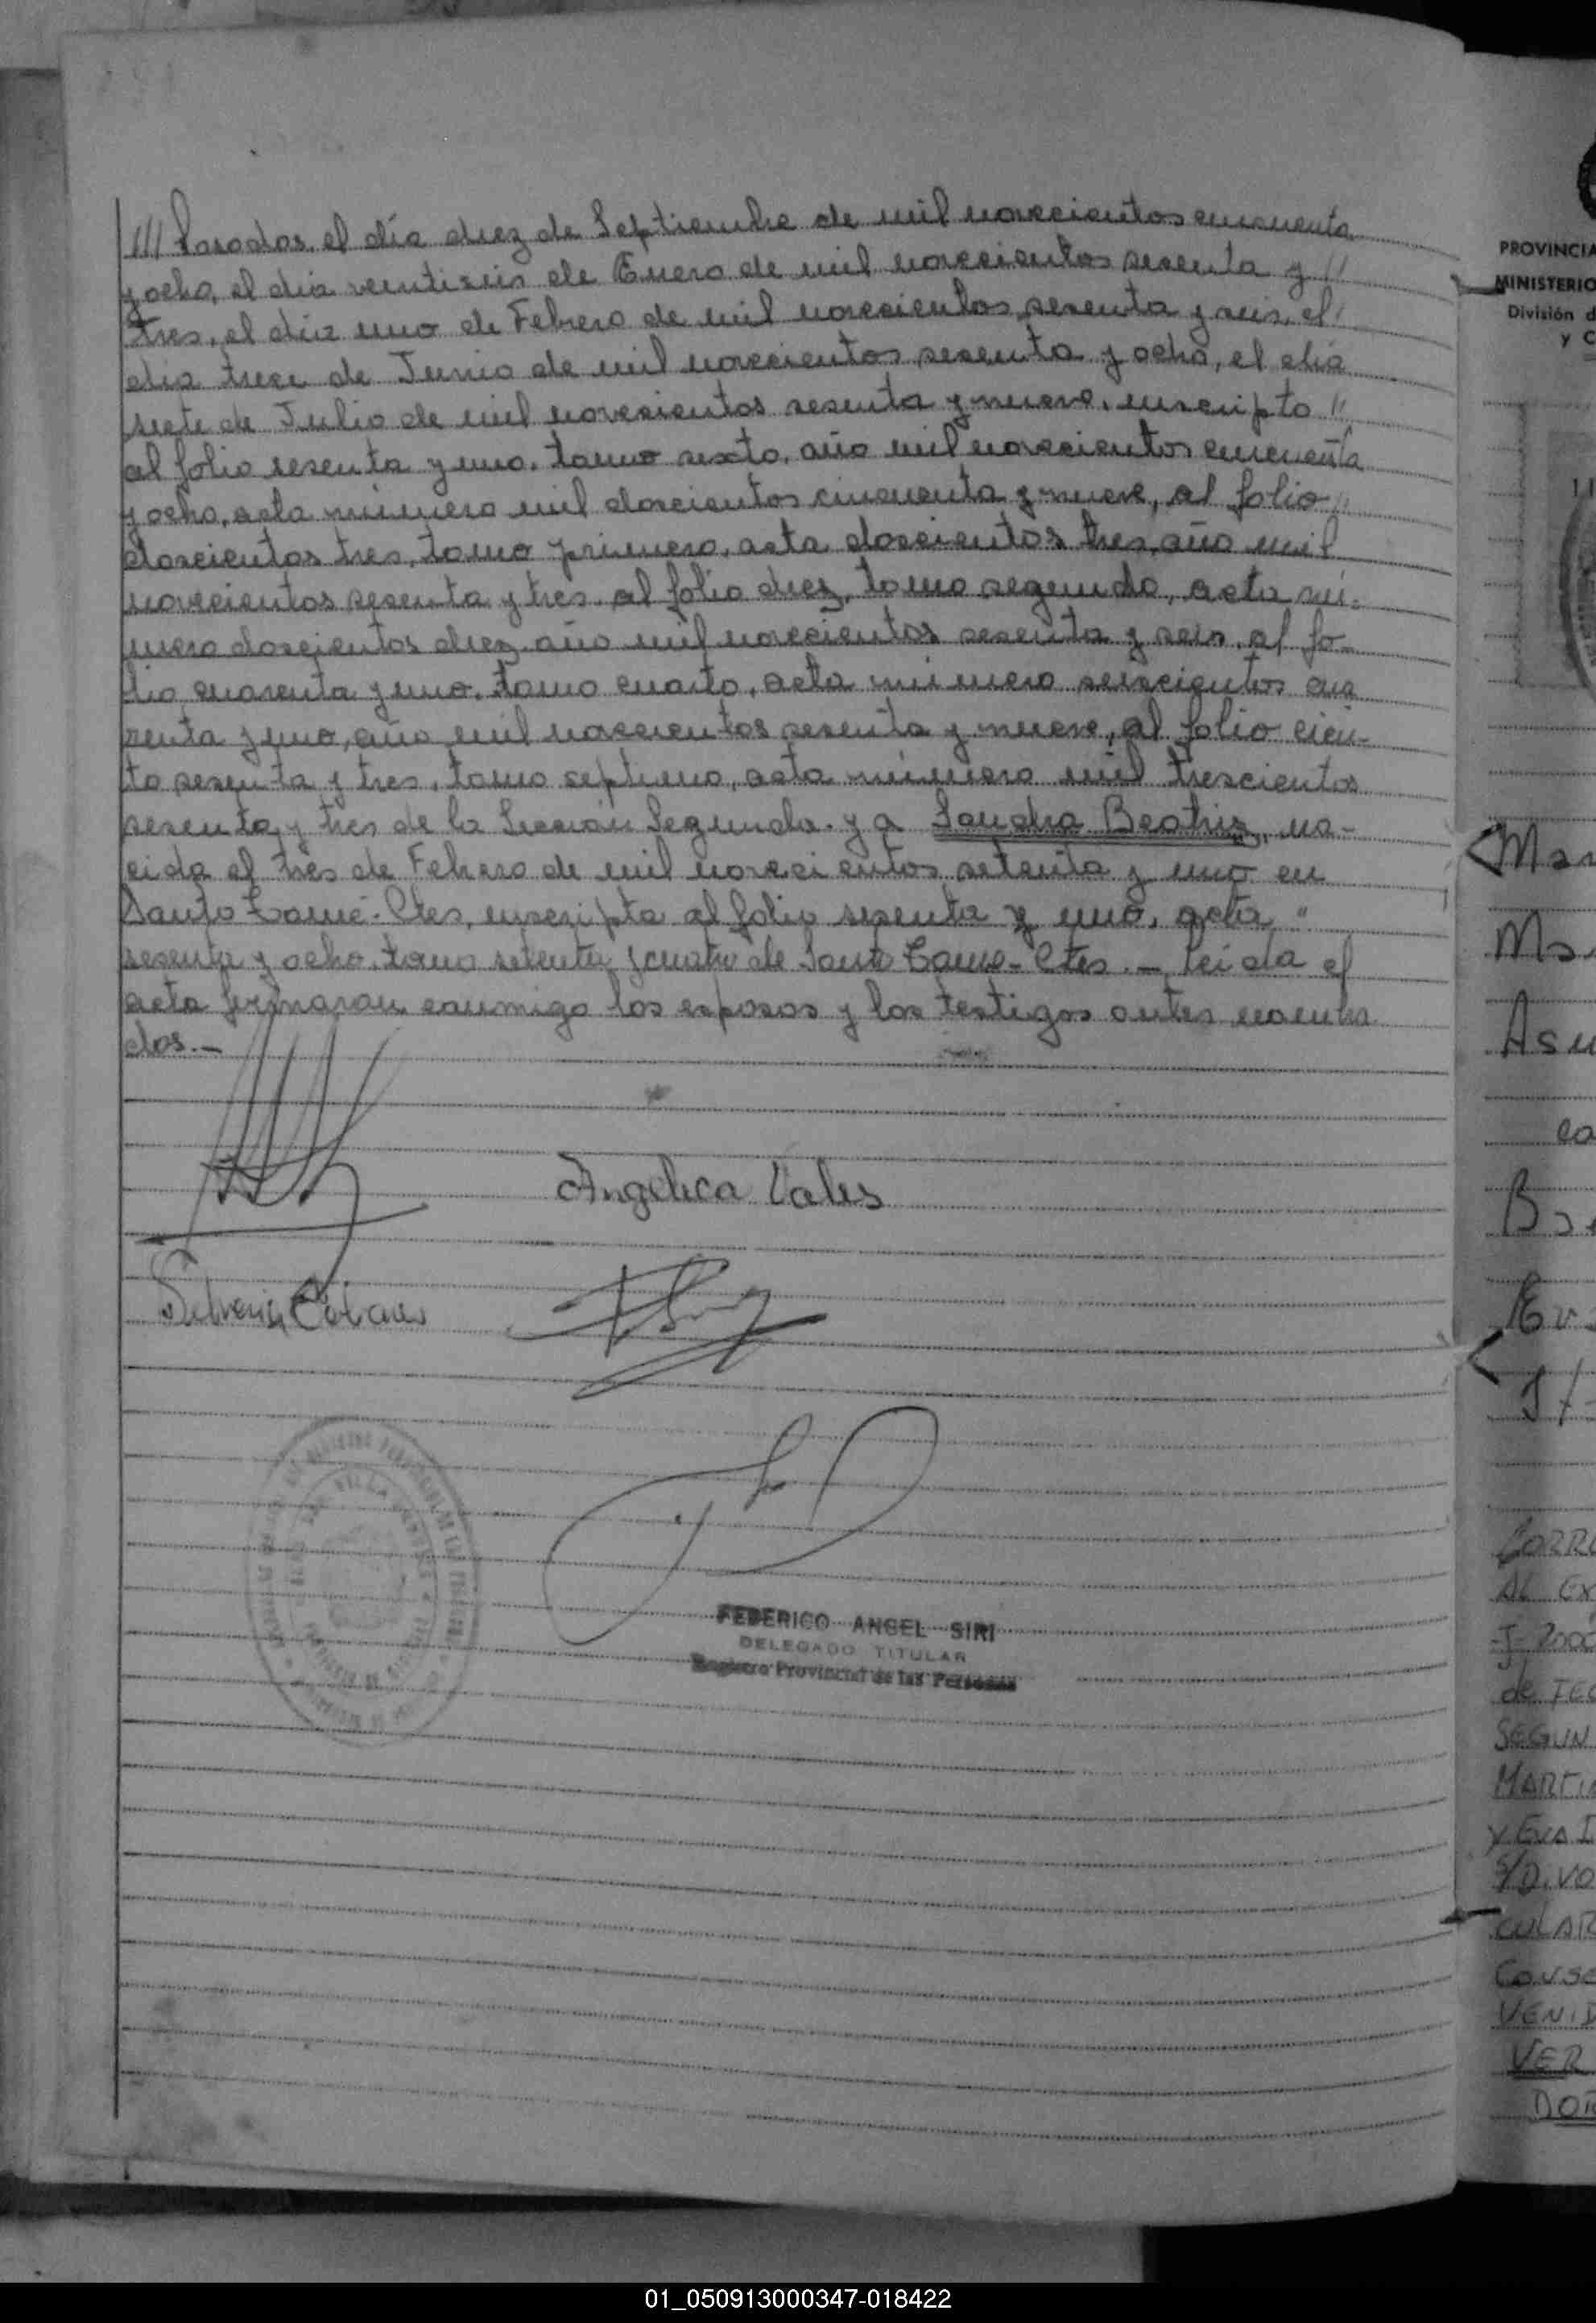 /// Posadas, el día diez de Septiembre de mil novecientos cincuenta
y ocho, el día veintiseis de Enero de mil novecientos sesenta y //
tres, el día uno de Febrero de mil novecientos sesenta y seis, el /
día trece de Junio de mil novecientos sesenta y ocho, el día
siete de Julio de mil novecientos sesenta y nueve, inscripto //
al folio sesenta y uno, tomo sexto, año mil novecientos cincuenta
y ocho, acta número mil doscientos cincuenta y nueve, al folio //
doscientos tres, tomo primero, acta doscientos tres, año mil
novecientos sesenta y tres, al folio diez, tomo segundo, acta nú-
mero doscientos diez, año mil novecientos sesenta y seis, al fo-
lio cuarenta y uno, tomo cuarto, acta número seiscientos cua
renta y uno, año mil novecientos sesenta y nueve, al folio cien-
to sesenta y tres, tomo septimo, acta número mil trescientos
sesenta y tres de la Sección Segunda. y a Sandra Beatriz, na-
cida el tres de Febrero de mil novecientos setenta y uno en
Santo Tomé - Ctes, inscripta al folio sesenta y uno, acta "
sesenta y ocho, tomo setenta y cuatro de Santo Tome - Ctes. — Leida el
acta firmaron conmigo los esposos y los testigos antes nombra
dos. —
Angelica Vales
FEDERICO ANGEL SIRI
DELEGADO TITULAR
Registro Provincial de las Personas
PROVINCIA
MINISTERIO
División d
y C
11
Mar
Ma
Asu
ca
Ev
CORR
AL EX
de TEC
SEGUN
MARTIN
Y EVA I
S/DIVO
CULAR
CONSE
VENID
VER
DOR
01_050913000347-018422